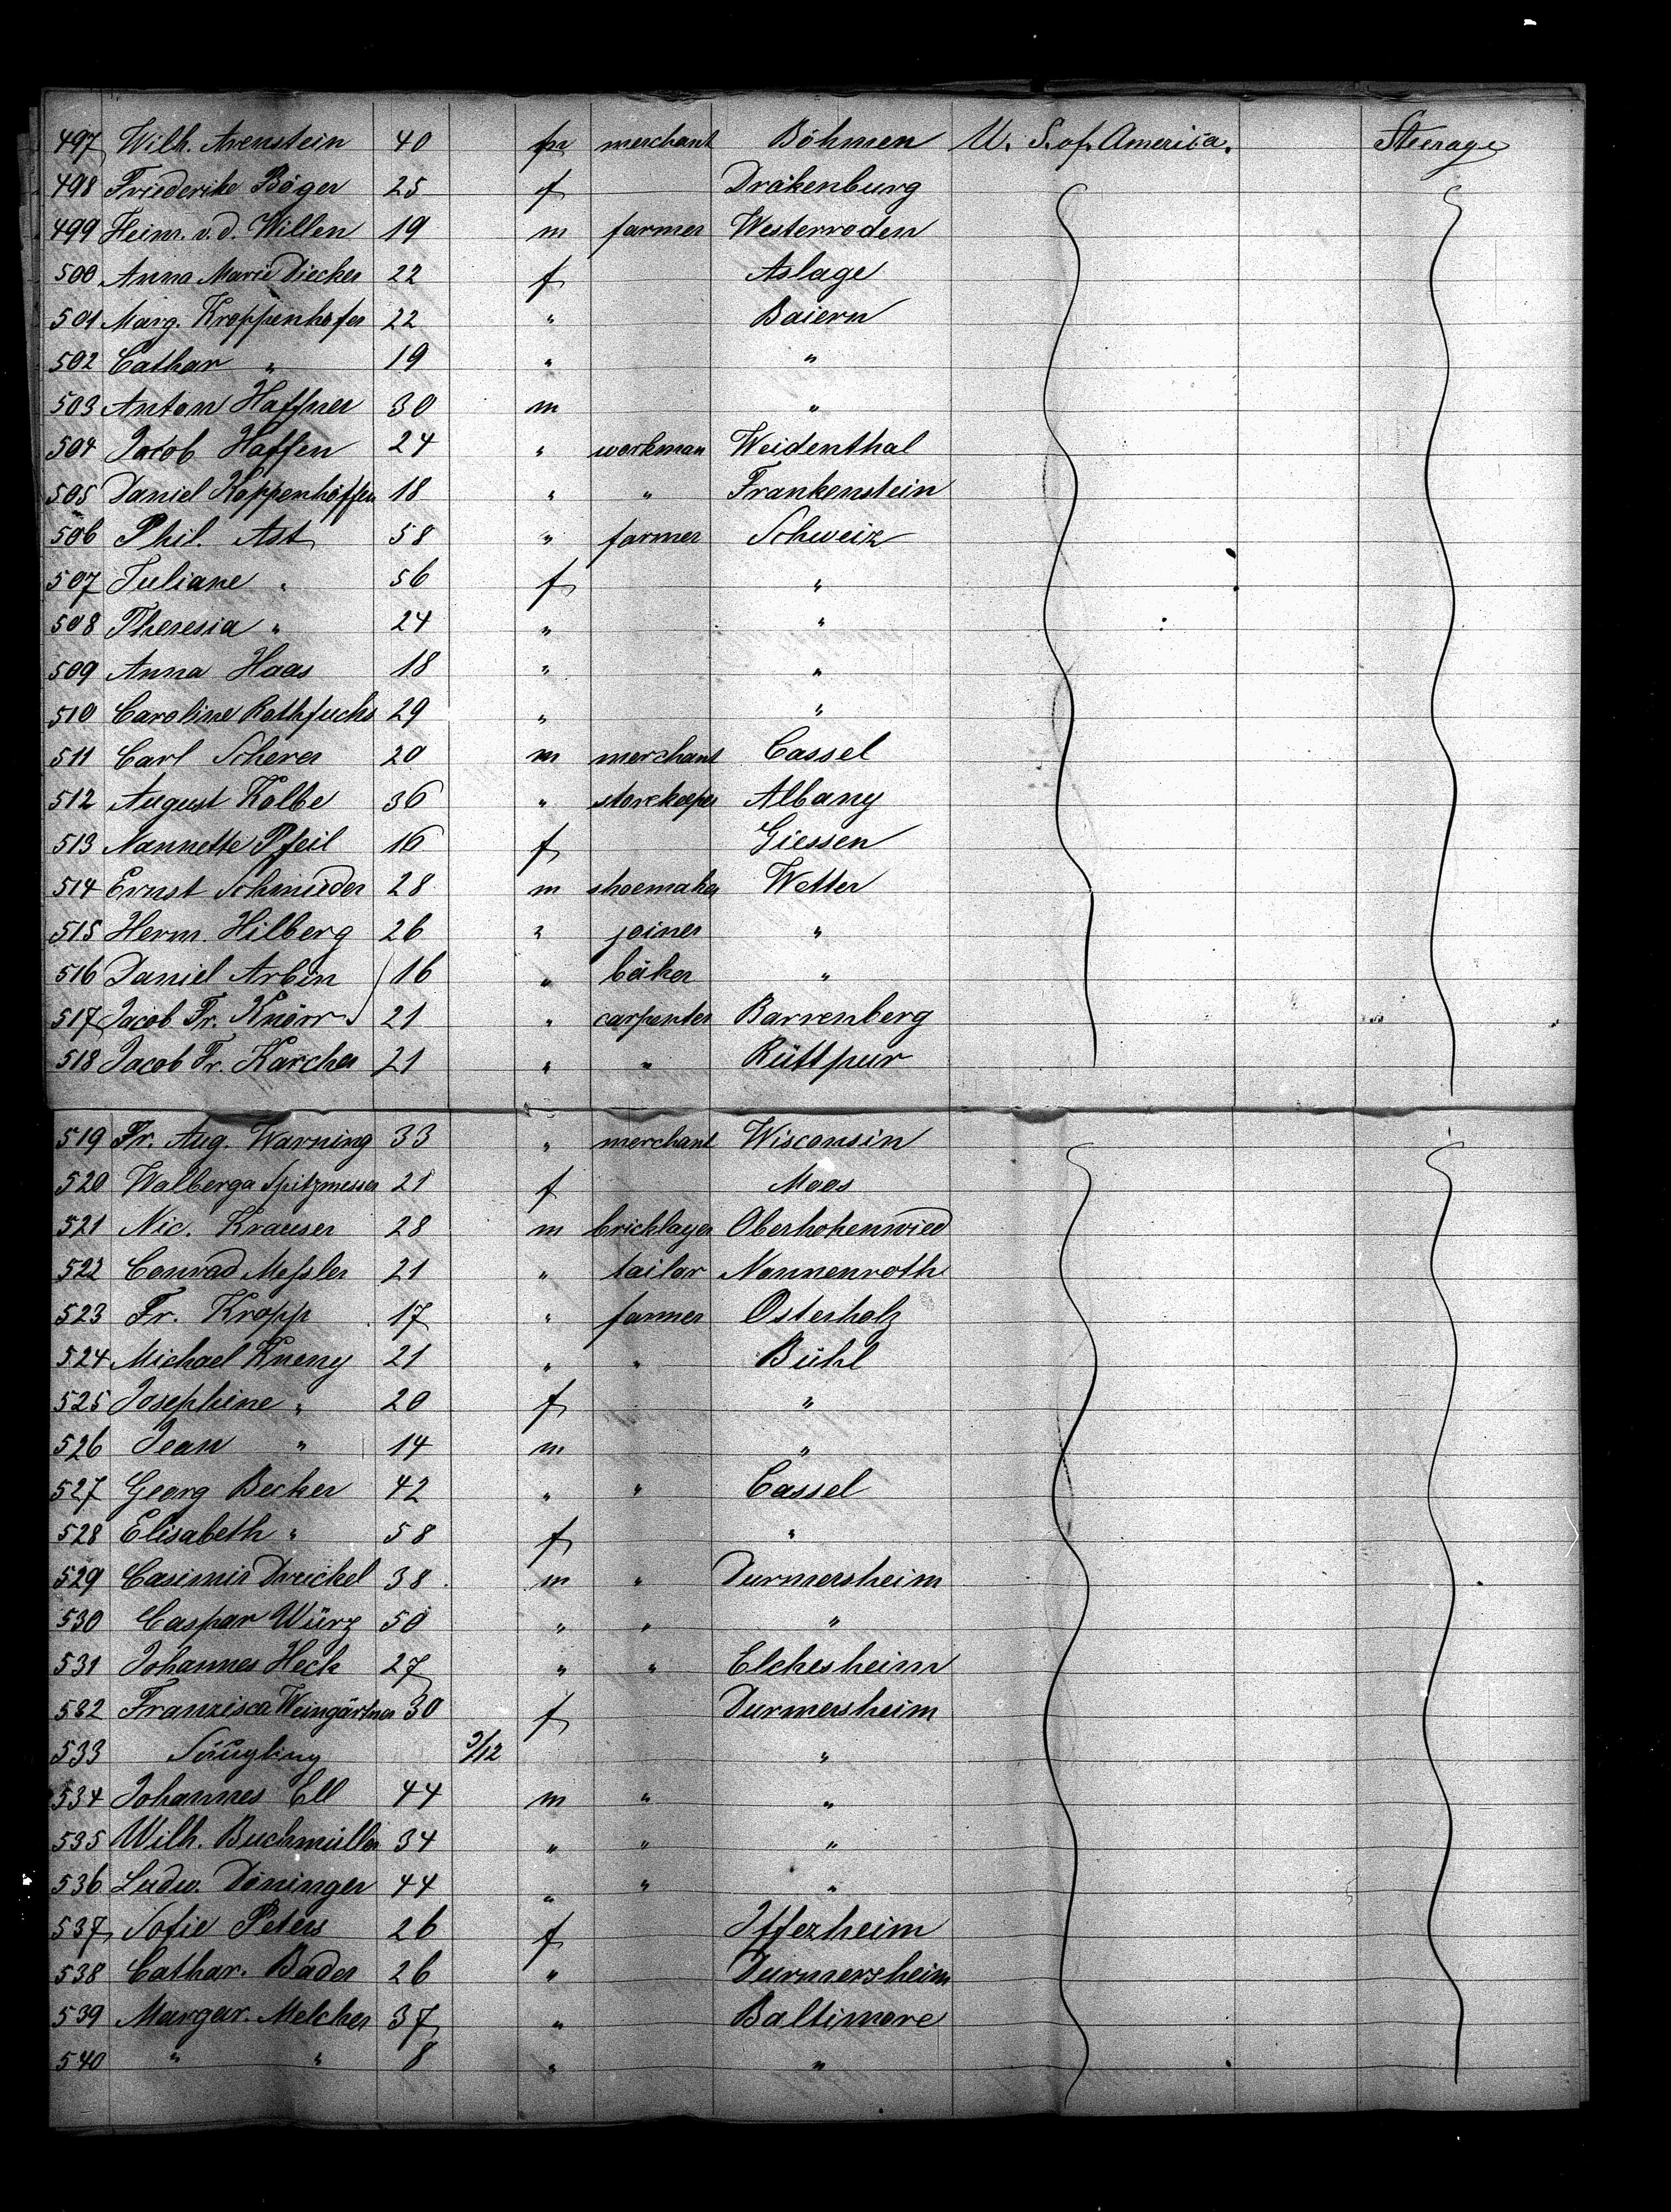 497 Wilh. Arenstein 40 m merchant Böhmen U. S. of. America. Steerage
498 Friederike Böger 25 f Drakenburg
499 Heinr. v. d. Willen 19 m farmer Westerroden
500 Anna Marie Diecker 22 f Aslage
501 Marg. Kroppenhofer 22 " Baiern
502 Cathar " 19 " "
503 Anton Haffner 30 m "
504 Jacob Haffen 24 " workman Weidenthal
505 Daniel Koppenhöffer 18 " " Frankenstein
506 Phil. Ast 58 " farmer Schweiz
507 Juliane " 56 f "
508 Theresia " 24 " "
509 Anna Haas 18 " "
510 Caroline Rothfuchs 29 " "
511 Carl Scherer 20 m merchant Cassel
512 August Kolbe 36 " storekeeper Albany
513 Nannette Pfeil 16 f Giessen
514 Ernst Schmieder 28 m shoemaker Wetter
515 Herm. Hilberg 26 " joiner "
516 Daniel Arbin 16 " bäker "
517 Jacob Fr. Knörr 21 " carpenter Barrenberg
518 Jacob Fr. Karcher 21 " " Rüttpur
519 Fr. Aug. Warning 33 " merchant Wisconsin
520 Walberga Spitzmesser 21 f Moos
521 Nic. Krauser 28 m bricklayer Oberhohenwied
522 Conrad Meßler 21 " tailor Nonnenroth
523 Fr. Kropp 17 " farmer Osterholz
524 Michael Kneny 21 " " Bühl
525 Josephine " 20 f "
526 Jean " 14 m "
527 Georg Becker 42 " " Cassel
528 Elisabeth " 58 f "
529 Casimir Dreickel 38 m " Durmersheim
530 Caspar Würz 50 " " "
531 Johannes Heck 27 " " Elchesheim
532 Franzisca Weingärtner 30 f Durmersheim
533 Säugling 3/12 "
534 Johannes Ell 44 m " "
535 Wilh. Buchmüller 34 " " "
536 Ludw. Döninger 44 " " "
537 Sofie Peters 26 f Iffezheim
538 Cathar. Bader 26 " Durmersheim
539 Margar. Melcher 37 " Baltimore
540 " " 8 " "